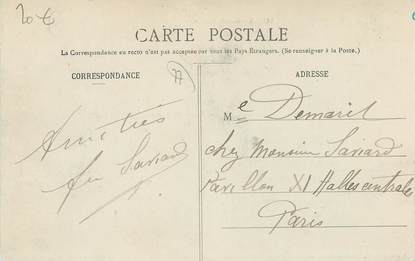 20 €
CARTE POSTALE
La Correspondance au recto n'est pas acceptée par tous les Pays Étrangers. (Se renseigner à la Poste.)
CORRESPONDANCE
77
ADRESSE
Amitiés
Saviard
Me Demaril
chez Monsieur Saviard
Pavillon XI Halles centrale
Paris